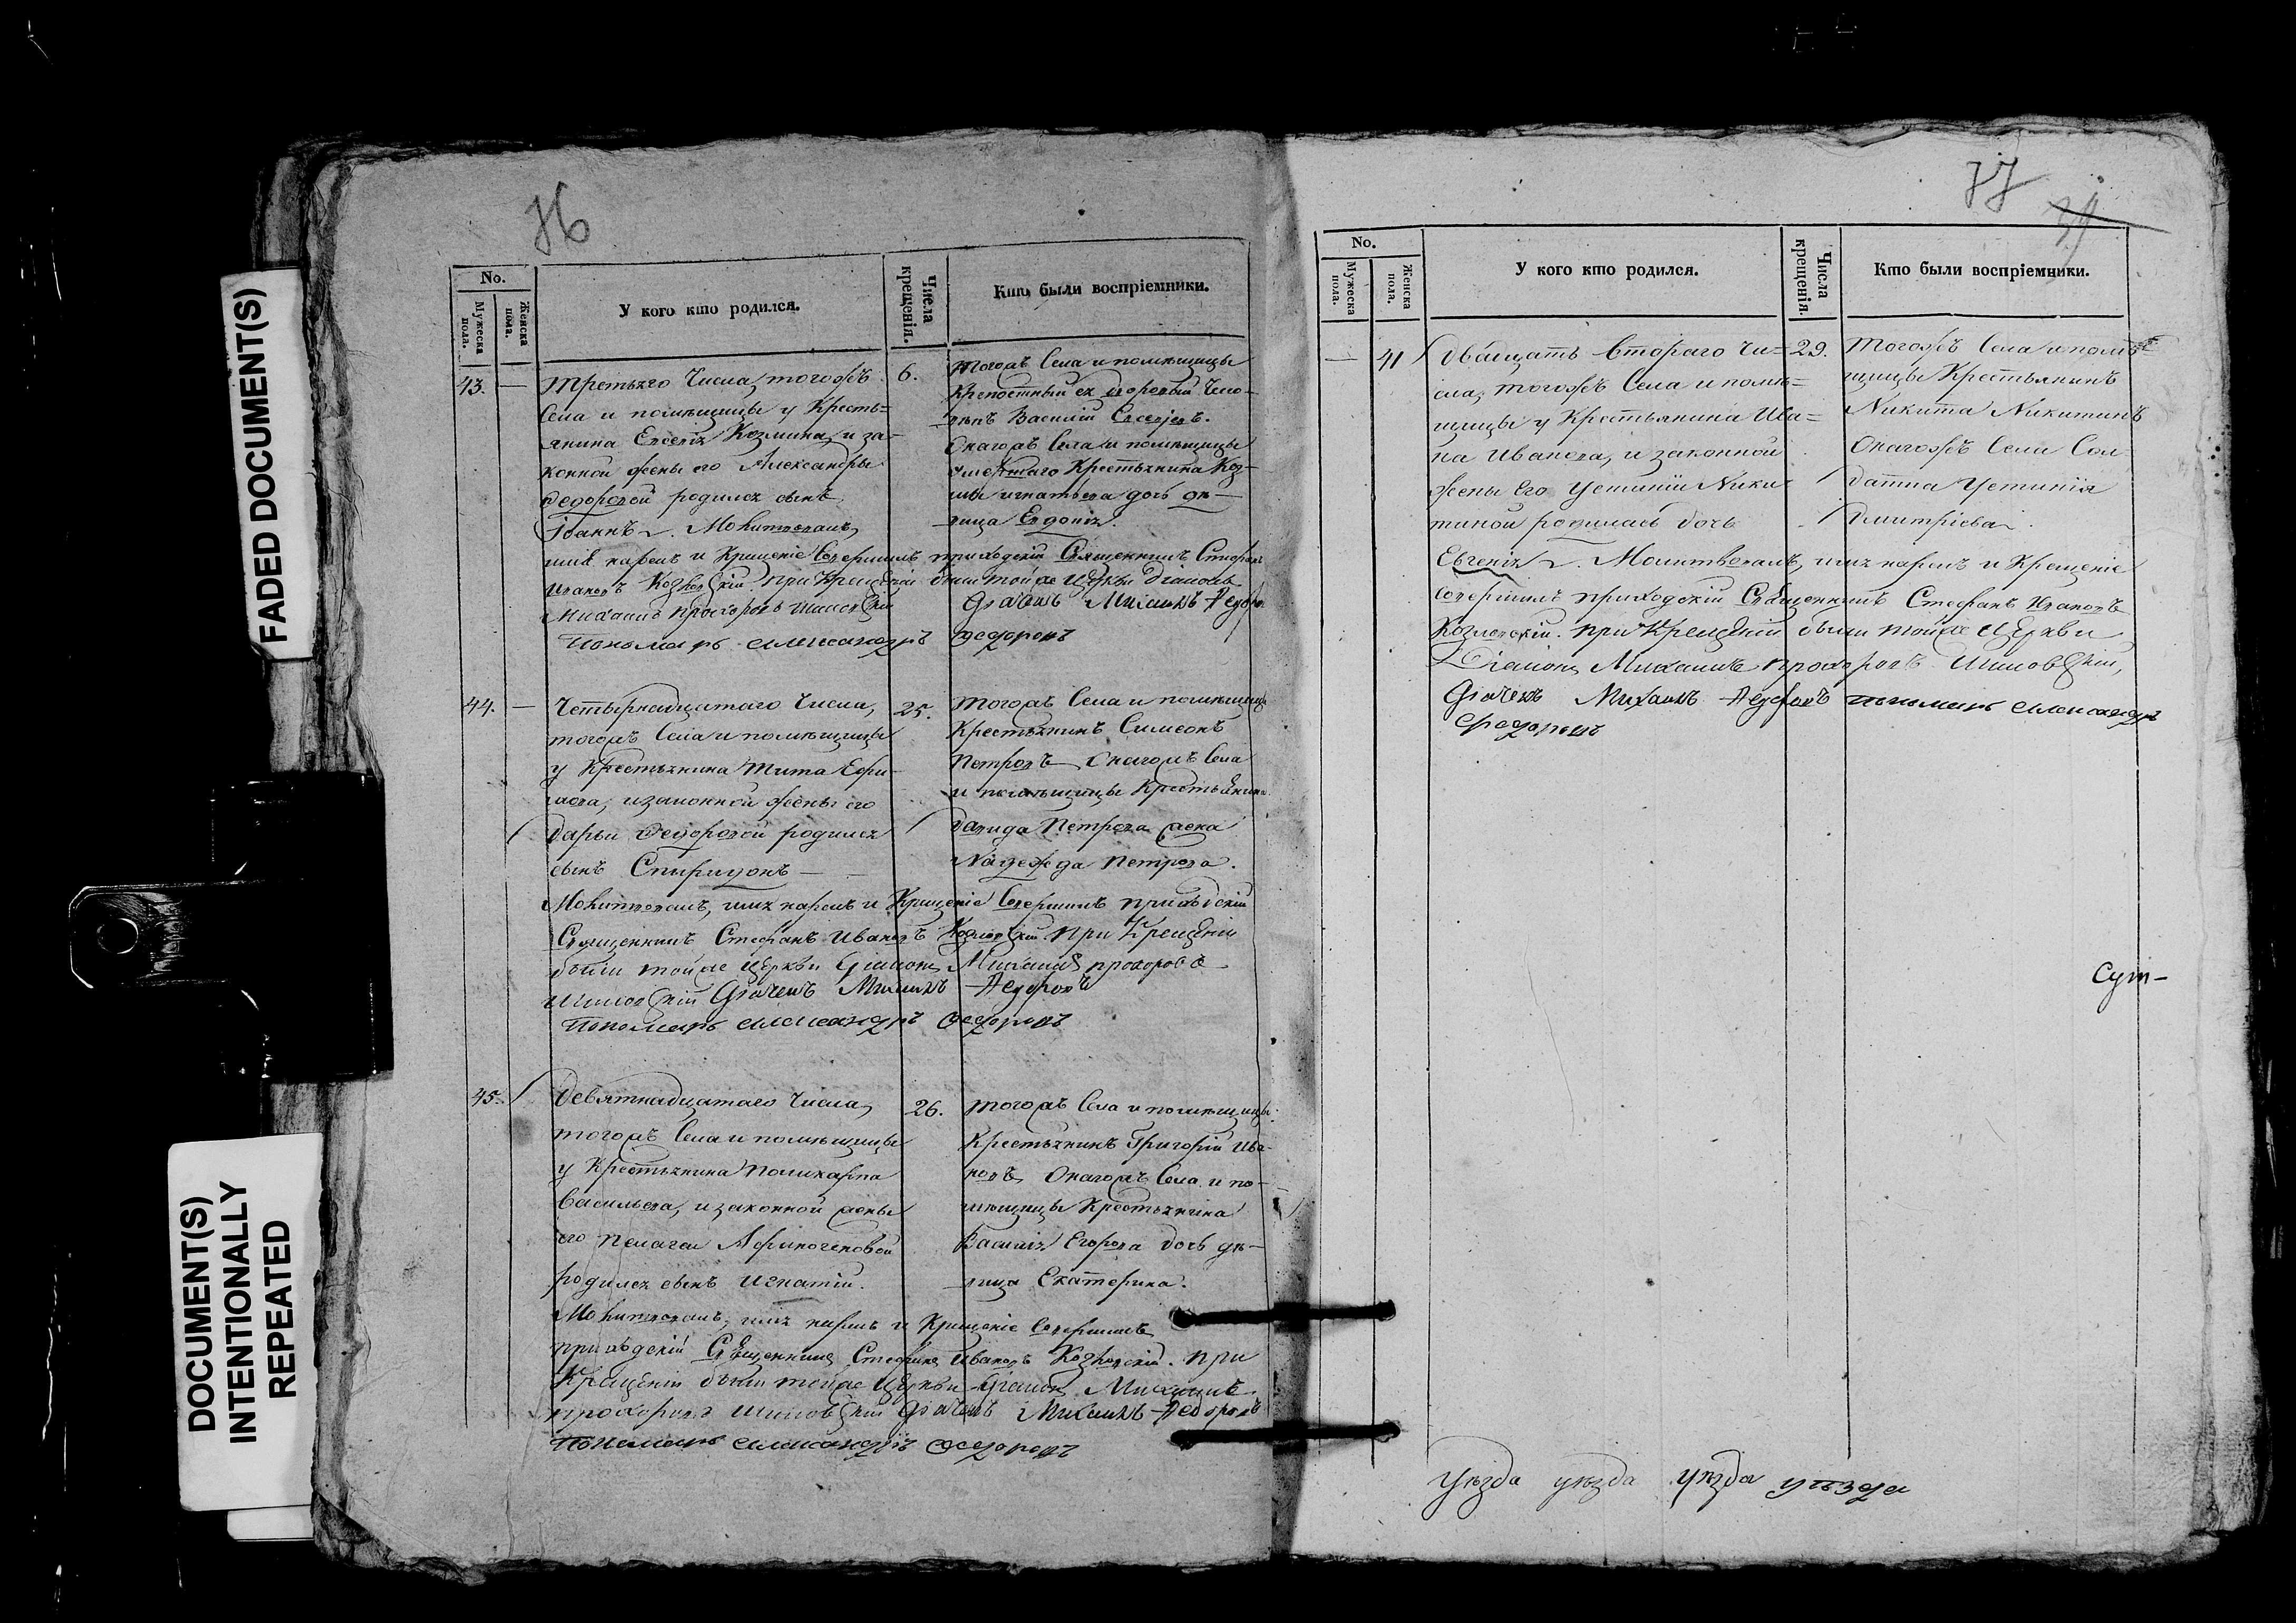 FADED DOCUMENT(S)
DOCUMENT(S)
INTENTIONALLY
REPEATED
76
No.
Мужеска пола.
Женска пола.
У кого кто родился.
Числа крещенія.
Кто были воспріемники.
43. — Третьяго числа, тогожъ
села и помѣщицы у кресть=
янина Евсевія Козмина, и за-
конной жены его Александры
Федоровой родился сынъ
Іоаннъ. Молитвовалъ,
6. Тогожъ села и помѣщицы
крепостный ея дворовый чело-
вѣкъ Василій
Онагожъ села и помѣщицы
умершаго крестьянина Коз-
мы Игнатьева дочь дѣ-
вица Евдокія.
имя нарекъ и крещеніе совершилъ приходскій священникъ Стефанъ
Ивановъ Козловскій. При крещеніи были тойже церкви діаконъ
Михаилъ Прохоровъ Шиловскій Дьячекъ Михаилъ Федоровъ
Пономарь Александръ Федоровъ
44. — Четырнадцатаго числа,
тогожъ села и помѣщицы
у крестьянина Тита
и законной жены его
Дарьи Федоровой родился
сынъ Спиридонъ —
25. Тогожъ села и помѣщицы
крестьянинъ Симеонъ
Петровъ Онагожъ села
и помѣщицы крестьянина
Давида Петрова жена
Надежда Петрова.
Молитвовалъ, имя нарекъ и крещеніе совершилъ приходскій
священникъ Стефанъ Ивановъ Козловскій При крещеніи
были тойже церкви діаконъ Михаилъ Прохоровъ
Шиловскій Дьячекъ Михаилъ Федоровъ
Пономарь Александръ Федоровъ
45. Девятнадцатаго числа,
тогожъ села и помѣщицы
у крестьянина Поликарпа
Васильева, и законной жены
его Пелагеи Афиногеновой
родился сынъ Игнатій.
26. Тогожъ села и помѣщицы
крестьянинъ Григорій Ива-
новъ, Онагожъ села и по-
мѣщицы крестьянина
Василія Егорова дочь дѣ-
вица Екатерина.
Молитвовалъ, имя нарекъ и крещеніе совершилъ
приходскій священникъ Стефанъ Ивановъ Козловскій. При
крещеніи были тойже церкви діаконъ Михаилъ
Прохоровъ Шиловскій Дьячекъ Михаилъ Федоровъ
Пономарь Александръ Федоровъ
77
39
No.
Мужеска пола.
Женска пола.
У кого кто родился.
Числа крещенія.
Кто были воспріемники.
— 41 Двадцать втораго чи=
сла, тогожъ села и помѣ=
щицы у крестьянина Ива=
на Иванова, и законной
жены его Устиніи Ники
тиной родилась дочь
29. Тогожъ села и помѣ
щицы крестьянинъ
Никита Никитинъ
Онагожъ села сол
датка Устинія
Дмитріева.
Евгенія. Молитвовалъ, имя нарекъ и крещеніе
совершилъ приходскій священникъ Стефанъ Ивановъ
Козловскій. При крещеніи были тойже церкви
Діаконъ Михаилъ Прохоровъ Шиловскій,
Дьячекъ Михаилъ Федоровъ Пономарь Александръ
Федоровъ
Сум—
уѣзда уѣзда уѣзда уѣзда